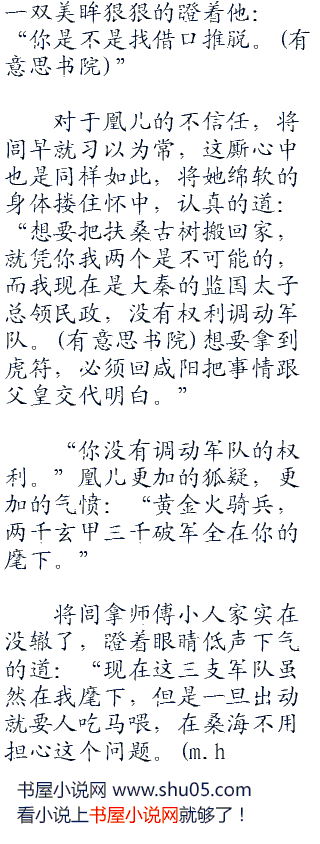 一双美眸狠狠的瞪着他：
“你是不是找借口推脱。(有
意思书院)”
对于凰儿的不信任，将
闾早就习以为常，这厮心中
也是同样如此，将她绵软的
身体搂住怀中，认真的道：
“想要把扶桑古树搬回家，
就凭你我两个是不可能的，
而我现在是大秦的监国太子
总领民政，没有权利调动军
队。(有意思书院)想要拿到
虎符，必须回咸阳把事情跟
父皇交代明白。”
“你没有调动军队的权
利。”凰儿更加的狐疑，更
加的气愤：“黄金火骑兵，
两千玄甲三千破军全在你的
麾下。”
将闾拿师傅小人家实在
没辙了，瞪着眼睛低声下气
的道：“现在这三支军队虽
然在我麾下，但是一旦出动
就要人吃马喂，在桑海不用
担心这个问题。(m.h
书屋小说网 www.shu05.com
看小说上书屋小说网就够了！